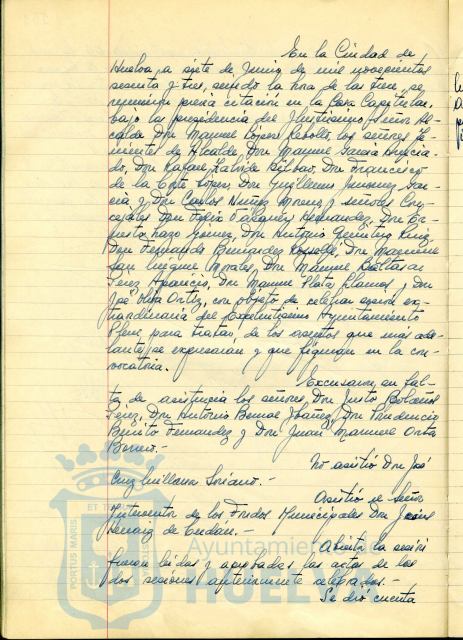 En la Ciudad de
Huelva, a siete de Junio de mil novecientos
sesenta y tres, siendo la hora de las trece, se
reunieron previa citación en la Casa Capitular,
bajo la presidencia del Ilustrísimo Señor Al-
calde Don Manuel López Rebollo los señores Te-
nientes de Alcalde, Don Manuel García
do, Don Rafael Bilbao, Don Francisco
de la Corte López, Don Guillermo Jimenez Gar-
cía y Don Carlos Núñez Moreno y señores Con-
cejales Don Hernandez, Don Er-
nesto Lazo Gomez, Don Antonio Ruiz,
Don Fernando Bérnardez Don Maximino
San Miguel Morales, Don Manuel Baltasar
Perez Aparicio, Don Manuel Plata Llamas y Don
José Oliva Ortiz, con objeto de celebrar sesión ex-
traordinaria del Excelentísimo Ayuntamiento
Pleno, para tratar, de los asuntos que más ade-
lante se expresarán y que figuran en la con-
vocatoria.-
Excusaron su fal-
ta de asistencia los señores, Don Justo Bolaños
Perez, Don Antonio Bernal Ibáñez, Don Prudencio
Benito Fernandez y Don Juan Manuel Orta
No asistió Don José
Cruz Quillana Soriano.-
Asistió el Señor
Interventor de los Fondos Municipales Don Jesús
de
Abierta la sesión
fueron leidas y aprobadas las actas de las
dos sesiones anteriormente celebradas.-
Se dió cuenta
ET TERRAE
PORTUS MARIS
Ayuntamiento de
HUELVA